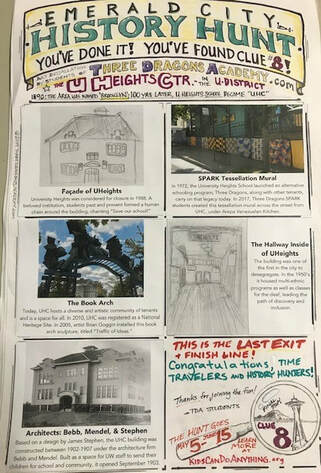 EMERALD CITY
HISTORY HUNT
YOU'VE DONE IT! YOU'VE FOUND CLUE #8!
THREE DRAGONS ACADEMY.com
THE U HEIGHTS CTR. IN THE U-DISTRICT
100 YRS LATER, U HEIGHTS SCHOOL BECAME "UHC"
Façade of UHeights
University Heights was considered for closure in 1988. A
beloved institution, students past and present formed a human
chain around the building, chanting "Save our school!"
SPARK Tessellation Mural
In 1972, the University Heights School launched an alternative
schooling program; Three Dragons, along with other tenants,
carry on that legacy today. In 2017, Three Dragons SPARK
students created the tessellation mural across the street from
UHC, under Arepa Venezuelan Kitchen.
The Book Arch
Today, UHC hosts a diverse and artistic community of tenants
and is a space for all. In 2010, UHC was registered as a National
Heritage Site. In 2009, artist Brian Goggin installed this book
arch sculpture, titled "Traffic of Ideas."
The Hallway Inside
of UHeights
The building was one of
the first in the city to
desegregate. In the 1950's
it housed multi-ethnic
programs as well as classes
for the deaf, leading the
path of discovery and
inclusion.
Architects: Bebb, Mendel, & Stephen
Based on a design by James Stephen, the UHC building was
constructed between 1902-1907 under the architecture firm
Bebb and Mendel. Built as a space for UW staff to send their
children for school and community, it opened September 1903.
THIS IS THE LAST EXIT
& FINISH LINE!
Congratulations, TIME
TRAVELERS and HISTORY HUNTERS!
Thanks for joining the fun!
~TDA STUDENTS
THE HUNT GOES
MAY 5-JUNE 15
LEARN
MORE AT
KIDSCANDOANYTHING.org
CLUE
8